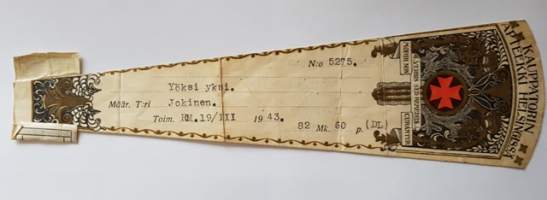 KAUPPATORIN
APTEEKKI HELSINKI
N:o 5275.
Yöksi yksi.
Määr. T:ri Jokinen.
Toim. RM. 19/III 1943. 82 Mk. 60 p. (DL)